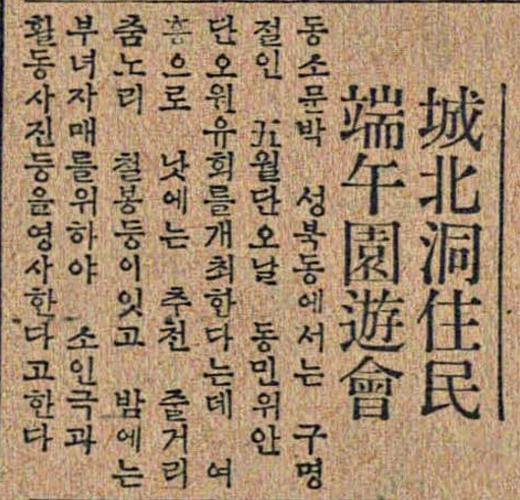 城北洞住民
端午園遊會
동소문박 성북동에서는 구명
절인 五월단오날 동민위안
단오원유회를개최한다는데 여
흥으로 낫에는 추천 줄거리
춤노리 철봉등이잇고 밤에는
부녀자매를위하야 소인극과
활동사진등을영사한다고한다